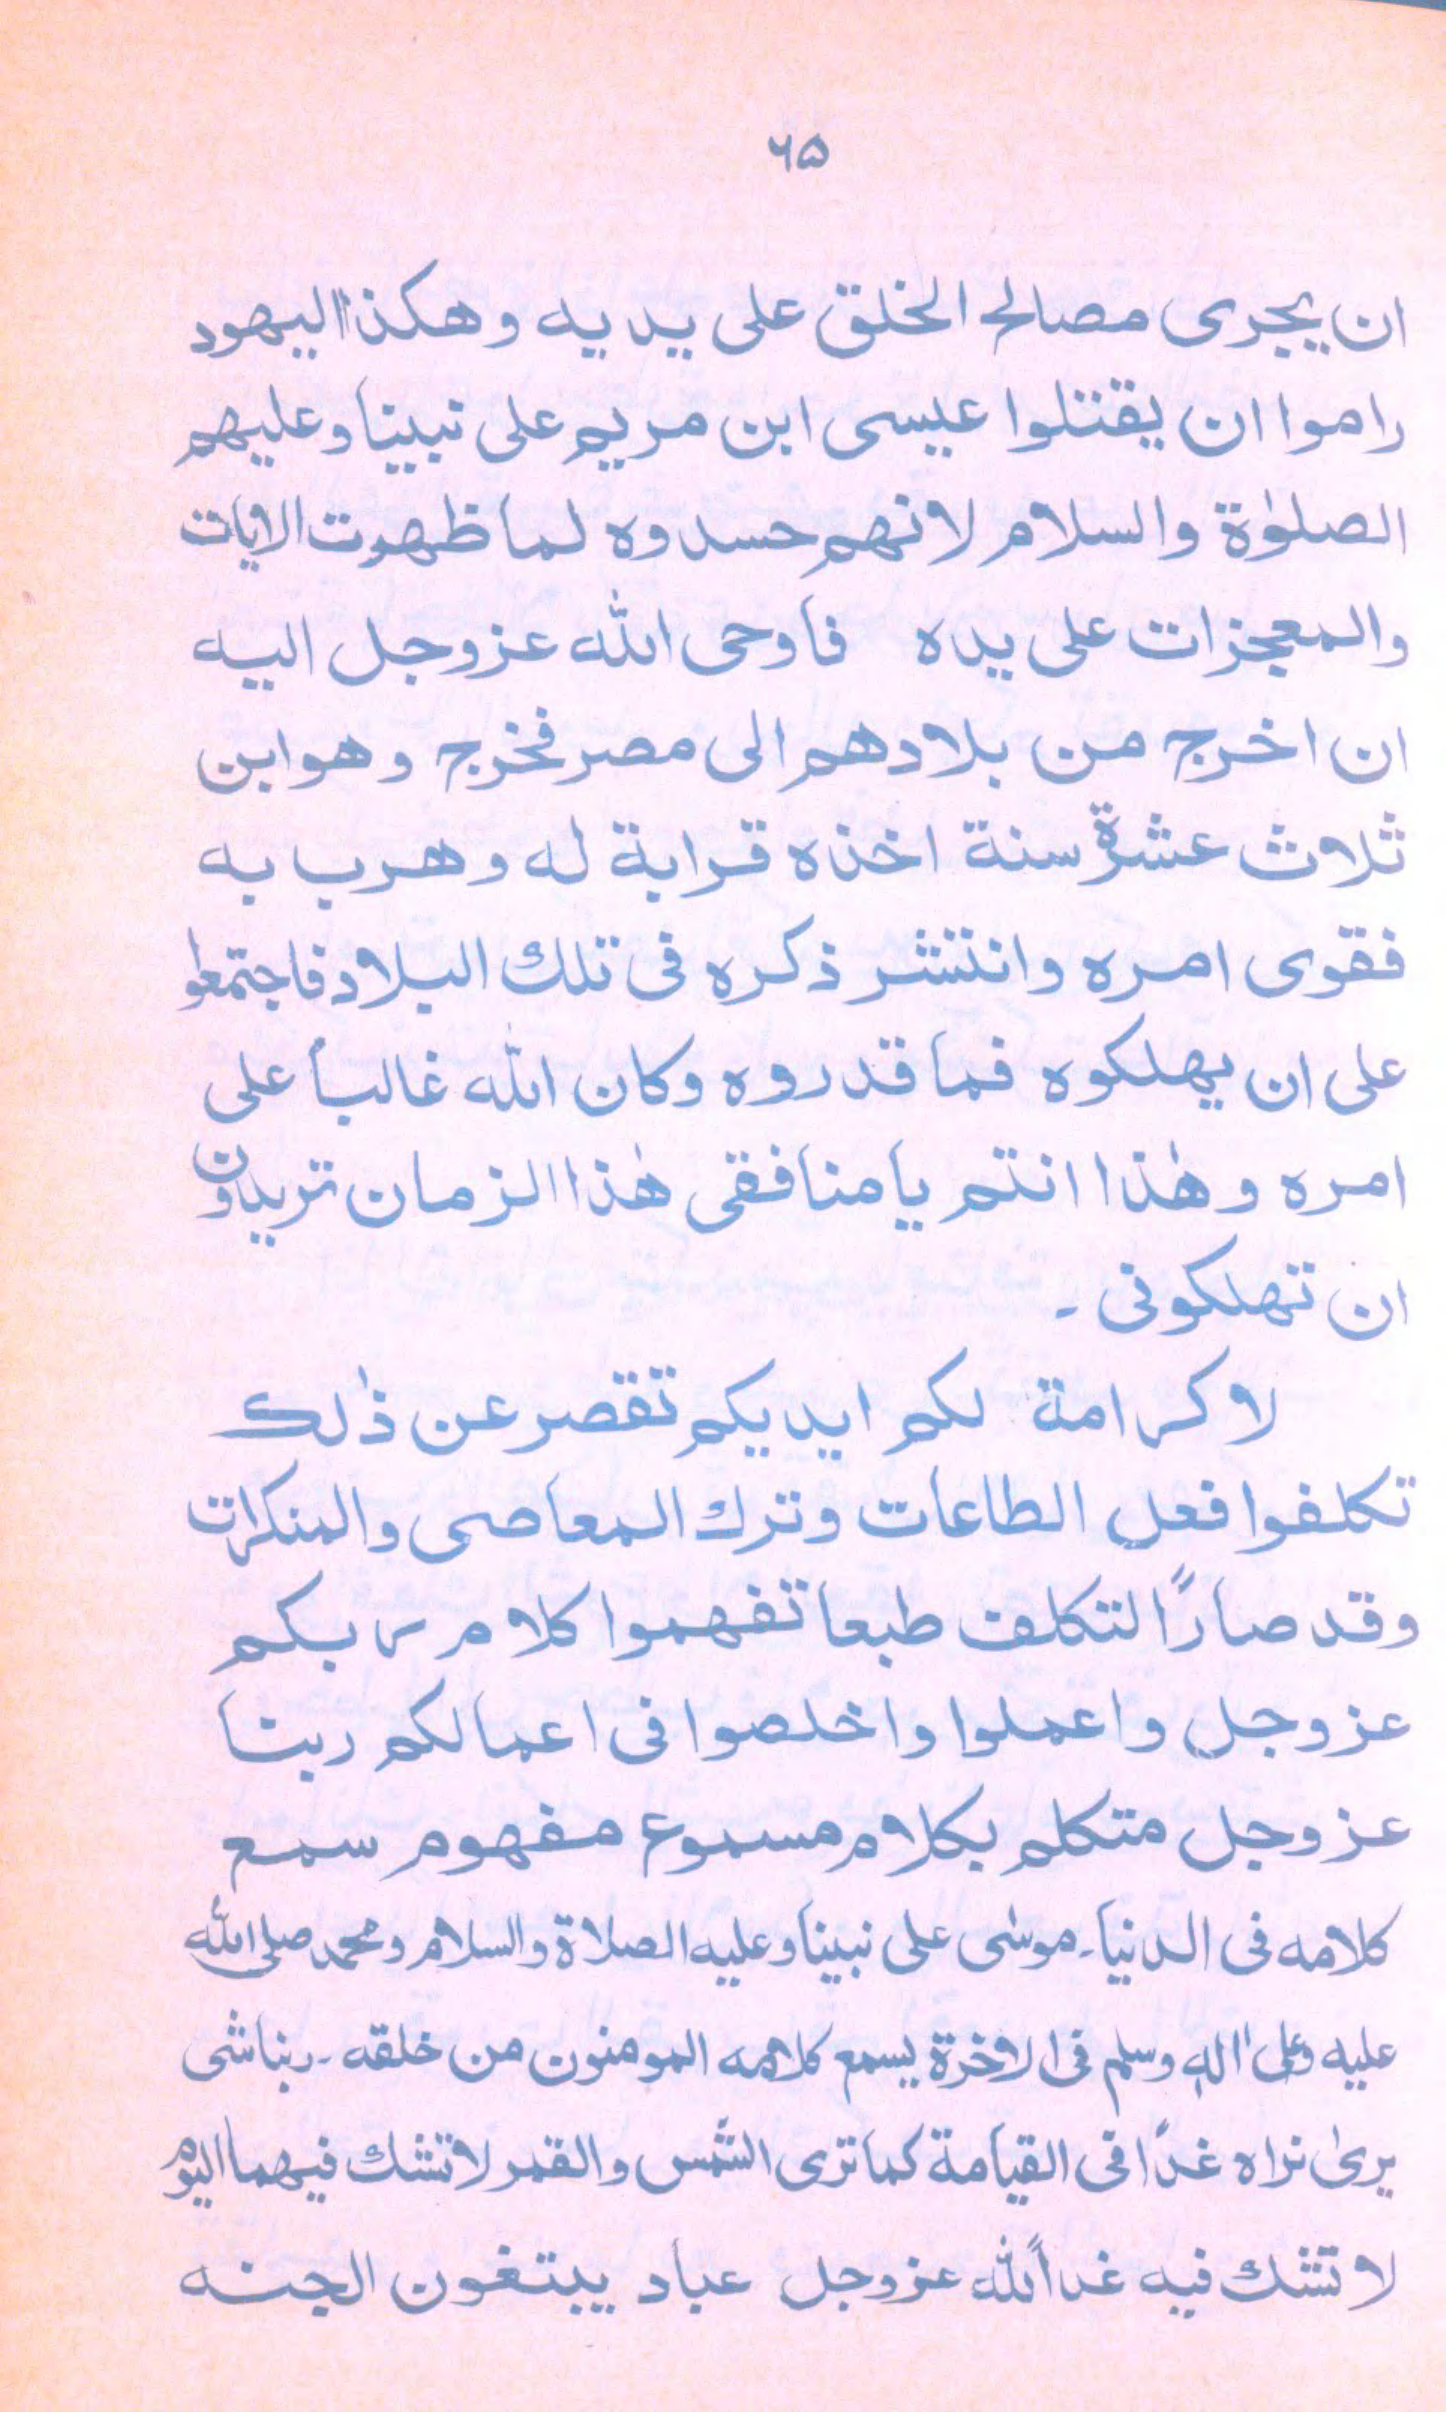 ۶۵
ان يجرى مصالح الخلق على يديه وهكذا اليهود
راموا ان يقتلوا عيسى ابن مريم على نبينا وعليهم
الصلوٰة والسلام لانهم حسدوه لما ظهرت الآيات
والمعجزات على يده فأوحى الله عزوجل اليه
ان اخرج من بلادهم الى مصر فخرج وهو ابن
ثلاث عشرة سنة اخذه قرابة له وهرب به
فقوى امره وانتشر ذكره فى تلك البلاد فاجتمعوا
على ان يهلكوه فما قدروه وكان الله غالباً على
امره وهٰذا انتم يا منافقى هٰذا الزمان تريدون
ان تهلكونى ۔
لا كرامة لكم ايديكم تقصر عن ذٰلك
تكلفوا فعل الطاعات وترك المعاصى والمنكرات
وقد صارًا لتكلف طبعا تفهموا كلام ربكم
عزوجل واعملوا واخلصوا فى اعمالكم ربنا
عزوجل متكلم بكلام مسموع مفهوم سمع
كلامه فى الدنيا۔ موسٰى على نبينا وعليه الصلاة والسلام ومحمد صلى الله
عليه وعلى اٰله وسلم فى الاخرة يسمع كلامه المومنون من خلقه۔ ربنا شى
يرىٰ نراه غدًا فى القيامة كما ترى الشمس والقمر لا تشك فيهما اليوم
لا تشك فيه غداً لله عزوجل عباد يبتغون الجنه